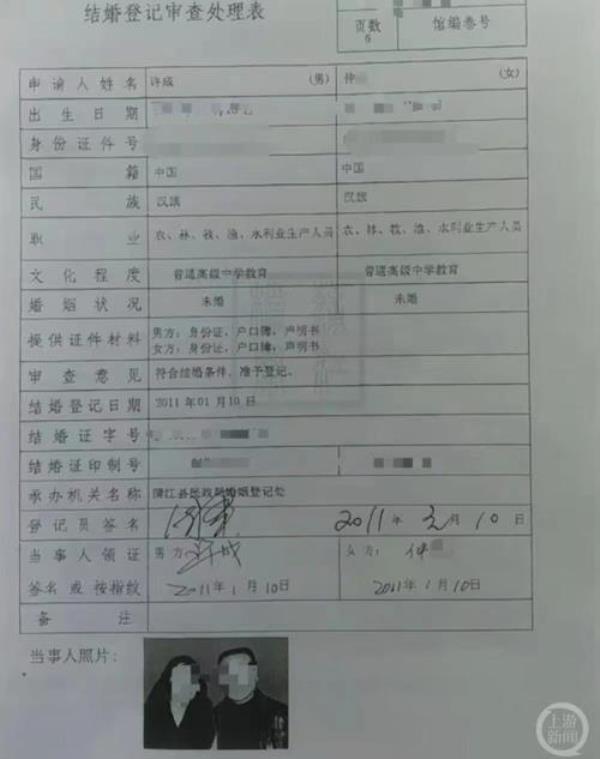 结婚登记审查处理表
页数 馆编卷号
6
申请人姓名 许成 (男) 仲 (女)
出生日期
身份证件号
国籍 中国 中国
民族 汉族 汉族
职业 农、林、牧、渔、水利业生产人员 农、林、牧、渔、水利业生产人员
文化程度 普通高级中学教育 普通高级中学教育
婚姻状况 未婚 未婚
提供证件材料 男方：身份证、户口簿、声明书
女方：身份证、户口簿、声明书
审查意见 符合结婚条件，准予登记。
结婚登记日期 2011年01月10日
结婚证字号
结婚证印制号
承办机关名称 蒲江县民政局婚姻登记处
登记员签名 2011年元月10日
当事人领证 男方：许成 女方：仲
签名或按指纹 2011年1月10日 2011年1月10日
备注
当事人照片：
上游新闻